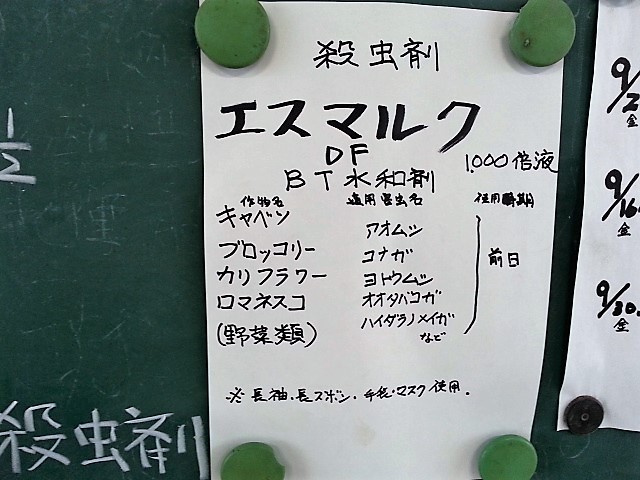 殺虫剤
エスマルク
DF
1,000倍液
BT水和剤
作物名 適用害虫名 使用時期
キャベツ アオムシ
ブロッコリー コナガ
カリフラワー ヨトウムシ
前日
ロマネスコ オオタバコガ
(野菜類) ハイダラノメイガ
など
※長袖・長ズボン・手袋・マスク使用.
1/2
殺虫剤
9/2
金
9/16
金
9/30
金